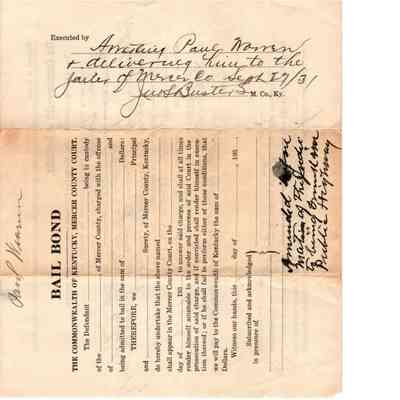 Executed by Arresting Paul Warren
& delivering him to the
jailer of Mercer Co. Sept 27/31
M. Co., Ky.
BAIL BOND
THE COMMONWEALTH OF KENTUCKY, MERCER COUNTY COURT.
The Defendant being in custody
of the , of Mercer County, charged with the offense
of and
being admitted to bail in the sum of Dollars:
THEREFORE, we Principal
and Surety, of Mercer County, Kentucky,
do hereby undertake that the above named
shall appear in the Mercer County Court, on the
day of 193 , to answer said charge, and shall at all times
render himself amenable to the order and process of said Court in the
prosecution of said charge, and if convicted shall render himself in execu-
tion thereof; or if he shall fail to perform either of these conditions, that
we will pay to the Commonwealth of Kentucky the sum of
Dollars.
Witness our hands, this day of , 193
Subscribed and acknowledged
in presence of
Amended upon
Motion of
to being drunk in
Public Highway
Paul Warren